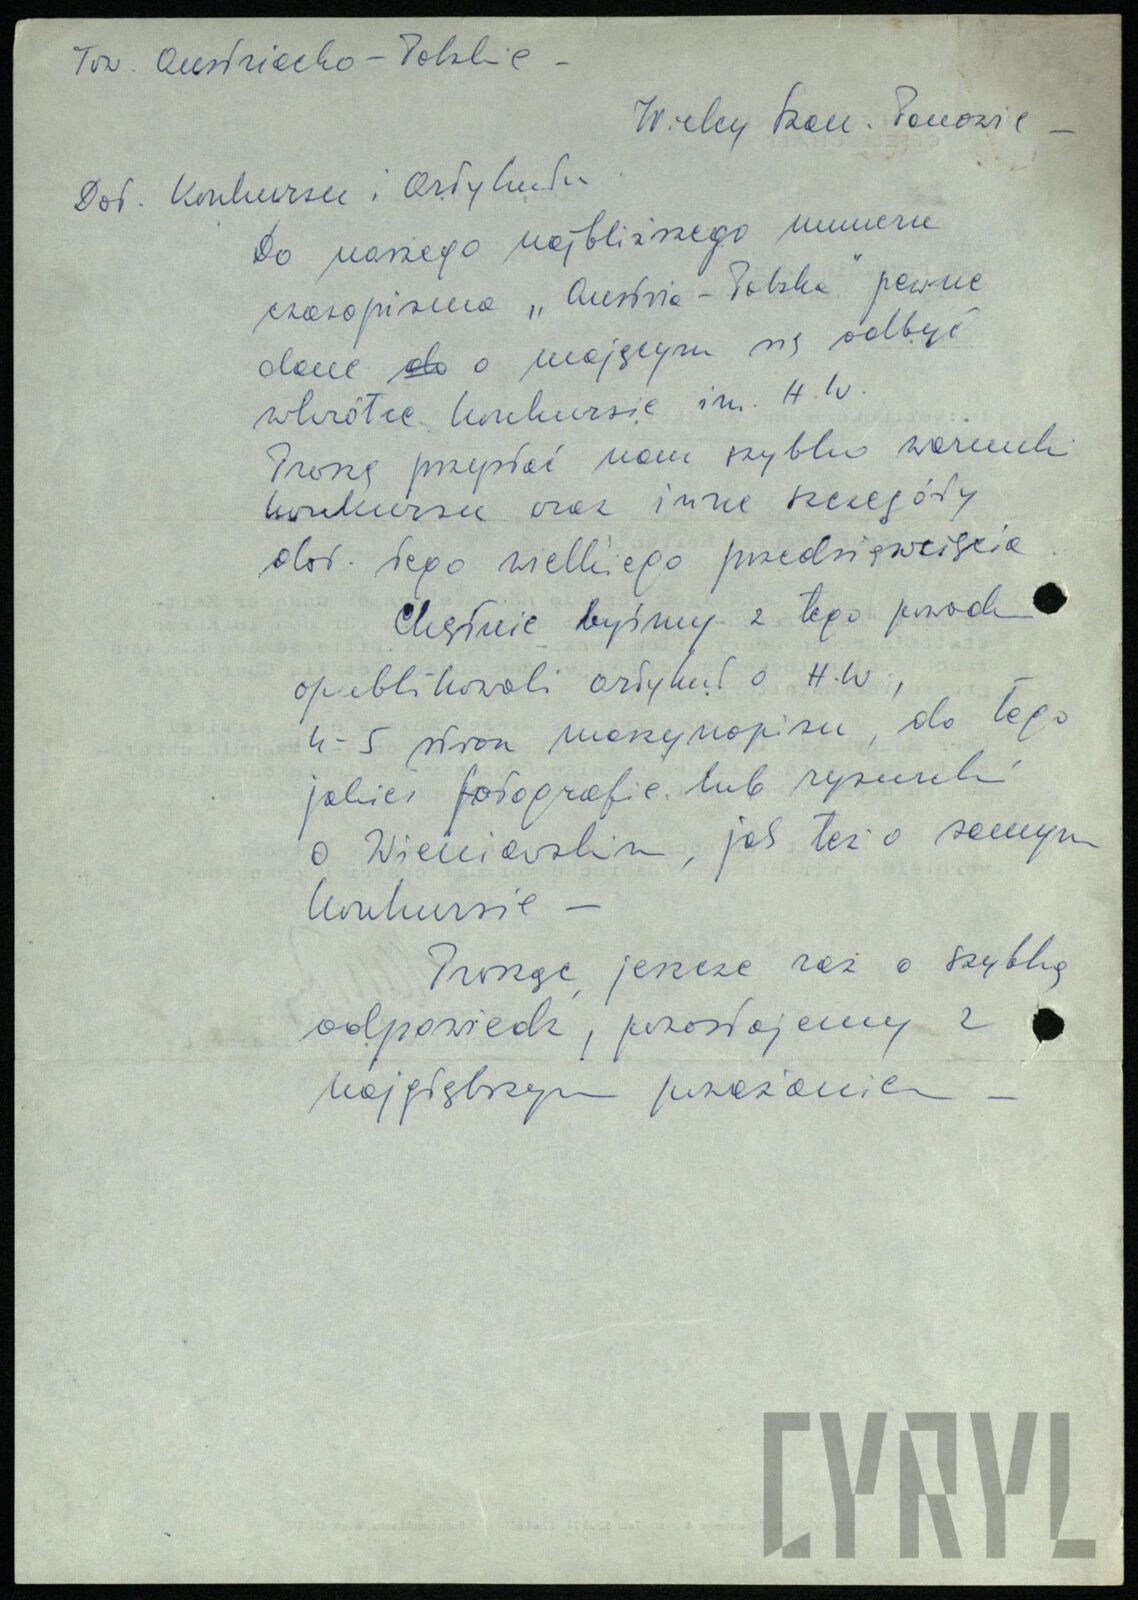 Tow. Austriacko-Polskie –
Wielcy Szan. Panowie –
Dot. Konkursu i Artykułu
Do naszego najbliższego numeru
czasopisma „Austria-Polska" pewne
dane do o mającym się odbyć
wkrótce konkursie im. H.W.
Proszę przysłać nam szybko warunki
konkursu oraz inne szczegóły
dot. tego wielkiego przedsięwzięcia.
Chętnie byśmy z tego powodu
opublikowali artykuł o H.W.,
4-5 stron maszynopisu, do tego
jakieś fotografie lub rysunki
o Wieniawskim, jak też o samym
konkursie –
Prosząc jeszcze raz o szybką
odpowiedź, pozostajemy z
najgłębszym poważaniem –
CYRYL